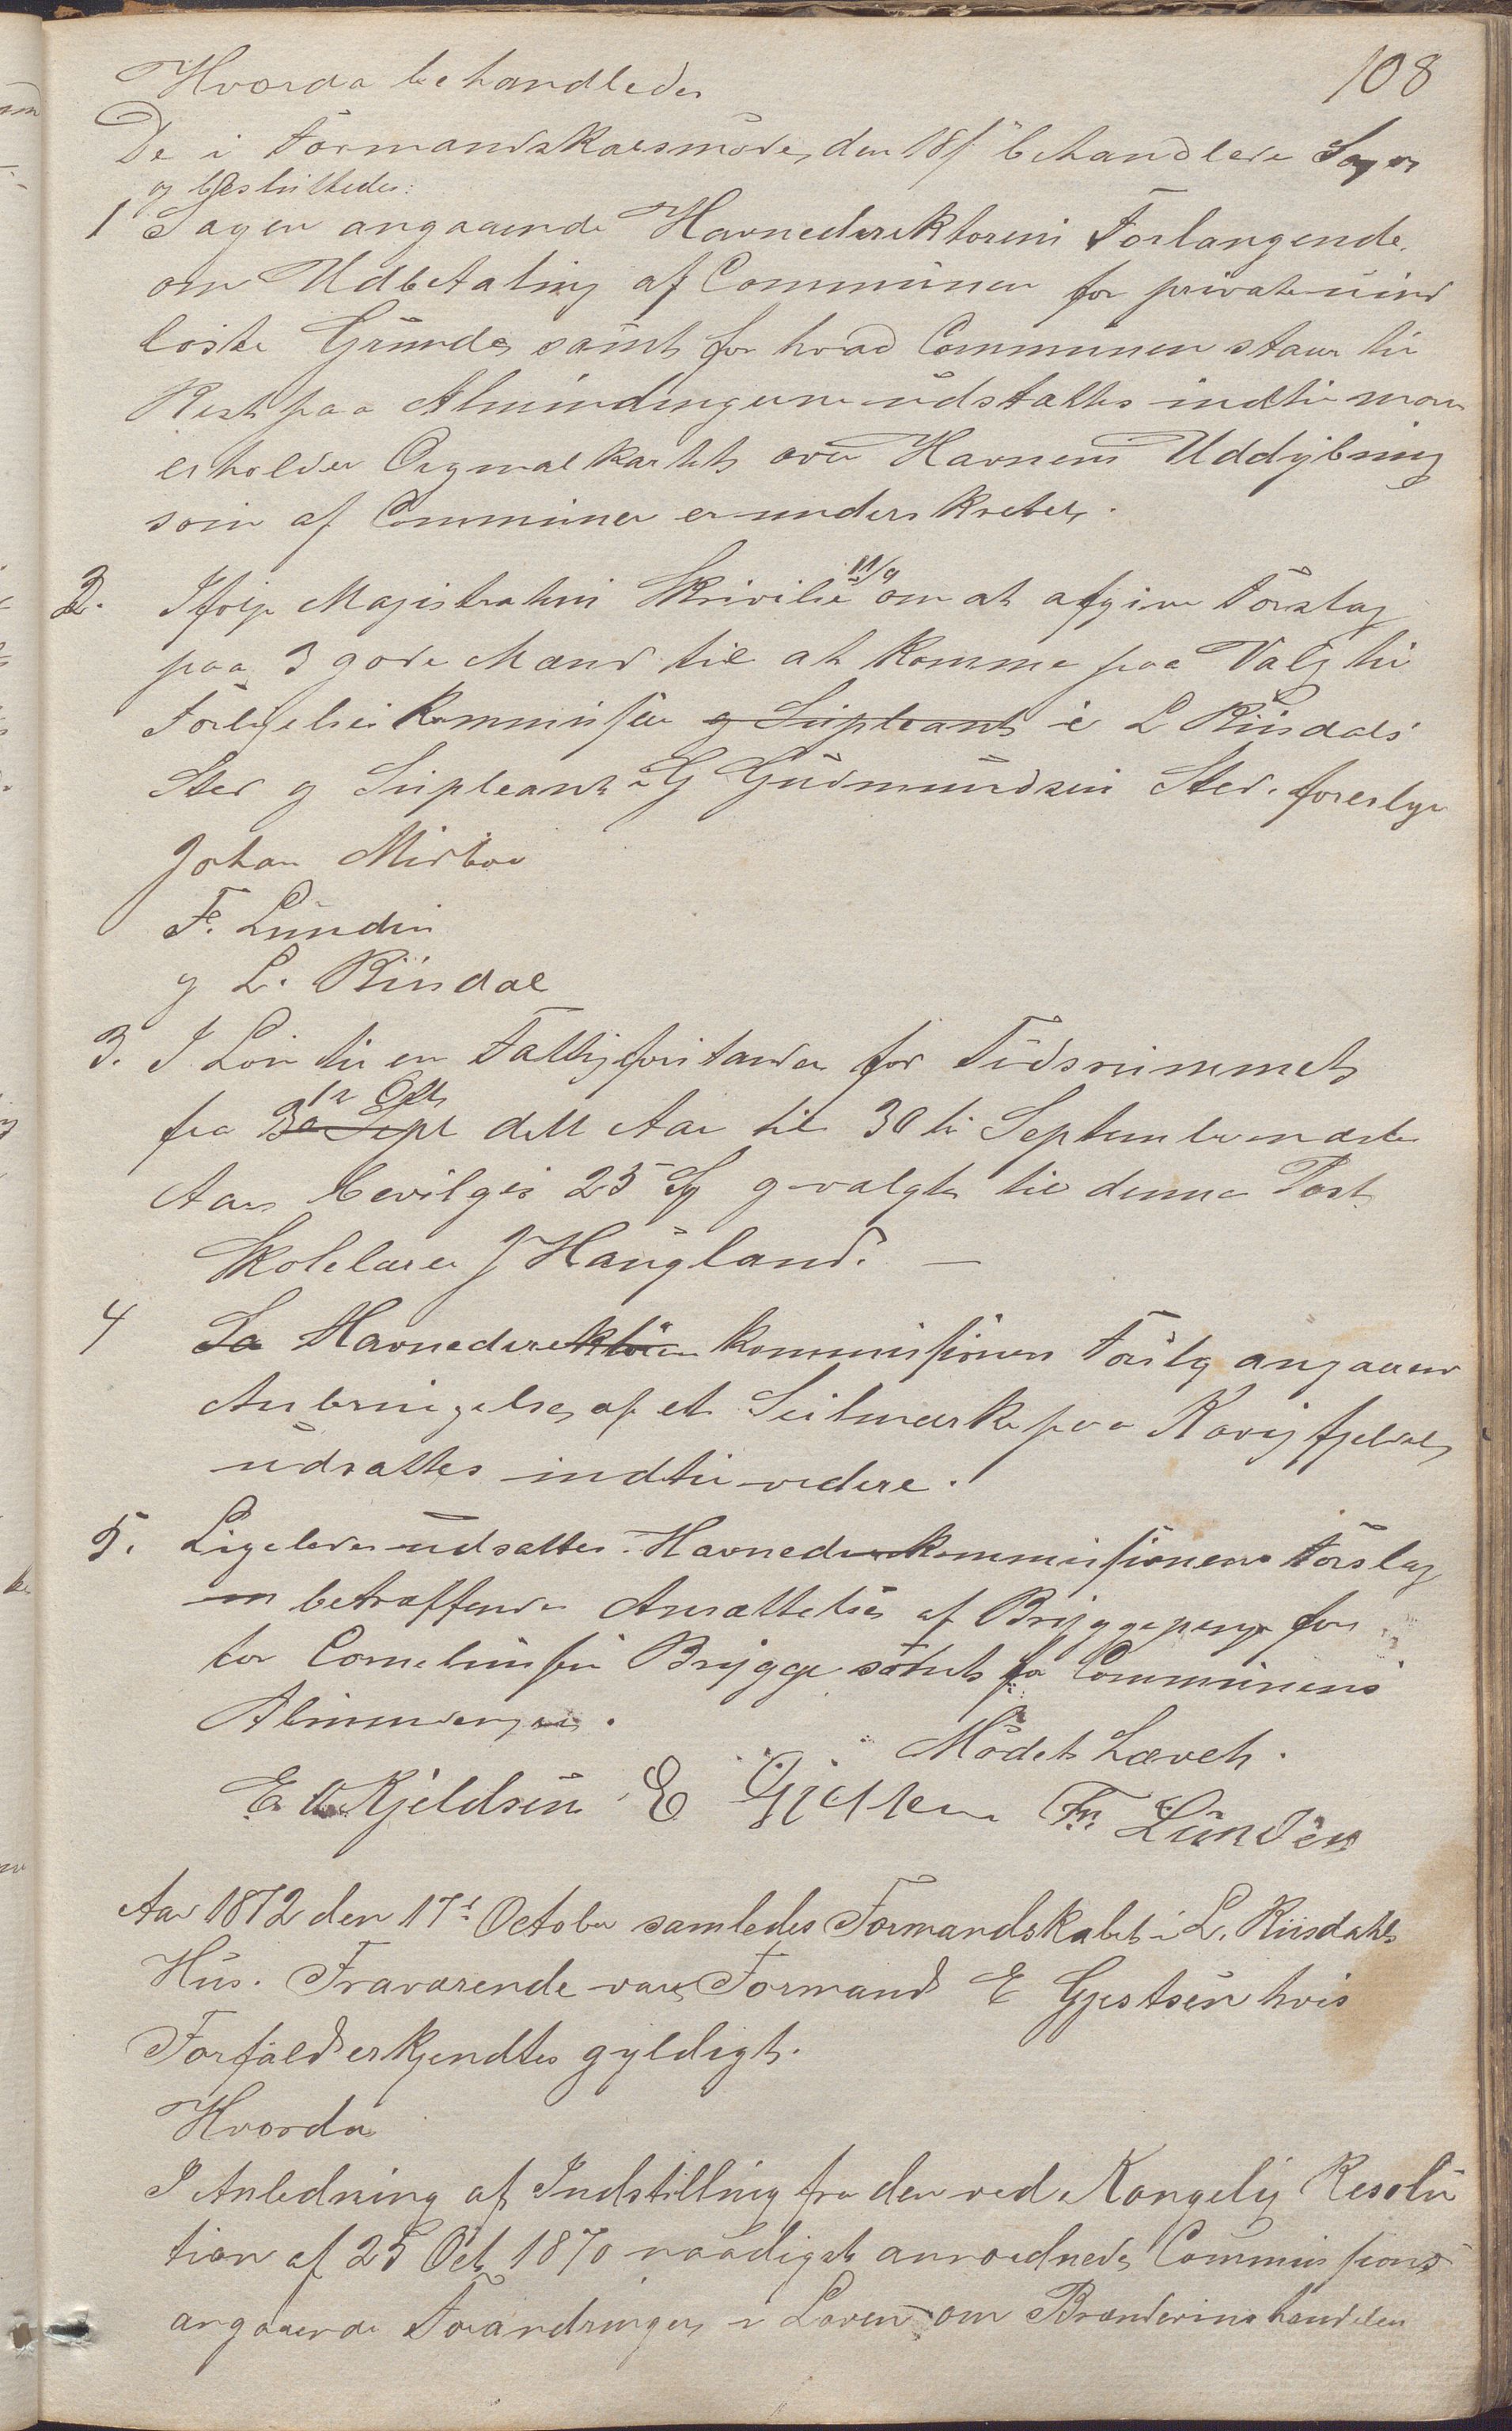 108
Hvorda behandledes
De i Formandskabsmøde, den 18/ behandlede Sager
og besluttedes:
1 Sagen angaaende Havnedirektørens Forlangende
om Udbetaling af Communen for private uind
løste Grunde, samt for hvad Communen staar til
Rest paa Almindingerne udsættes indtil man
erholder Orginalkartet over Havnens Uddybning
som af Communen er underskrevet.
2. Ifølge Magistratens Skrivelse 11/9 om at afgive Forslag
paa 3 gode Mænd til at komme paa Valg til
Forligelseskommissær og Supleant i L Riisdals
Sted og Supleant i G Gudmundsens Sted. foreslges
Johan Midbøe
F. Lunden
og L. Riisdal
3. I Løn til en Fattigforstander for Tidsrummet
fra 30 Sept 1ste Octb dette Aar til 30te September næste
Aar bevilges 25 Spd og valgtes til denne Post
Skolelærer J Haugland. —
4 Sa Havnedirektøren kommissionens Forslg angaaende
Anbringelse af et Seilmærke paa Kovigfjeldet
udsattes indtil videre.
5. Ligeledes udsattes Havnedirekommissionens Forslag
om betræffende Ansættelse af Bryggepenge for
tor Corneliussens Brygge samt for Communens
Almindinger.
Mødet hævet.
E Kjeldsen E Gjestsen Fr. Lunden
Aar 1872 den 17de October samledes Formandskabet i L. Riisdahls
Hus. Fraværende var Formand E Gjestsen hvis
Forfald erkjendtes gyldigt.
Hvorda
I Anledning af Indstilling fra den ved Kongelig Resolu
tion af 25 Oct 1870 naadigst anordnede Commissions
angaaende Forandringer i Loven om Brændevinshandelen